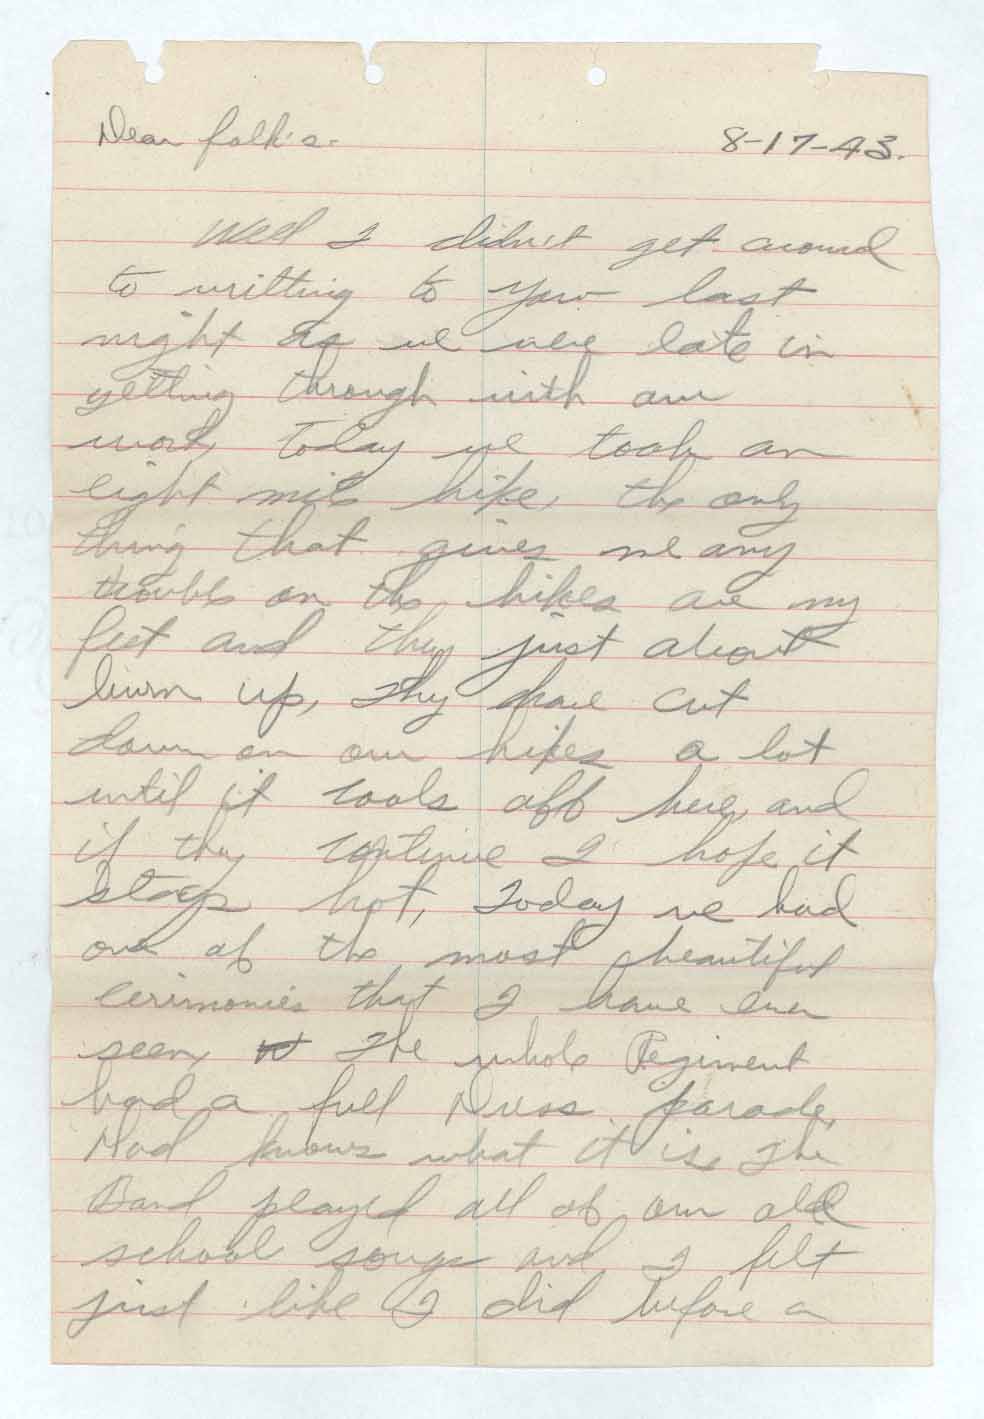 Dear folk's.
8-17-43.
Well I didn't get around
to writting to you last
night as we were late in
getting through with our
work, Today we took an
eight mile hike, the only
thing that gives me any
trouble on the hikes are my
feet and they just about
burn up, They have cut
down on our hikes a lot
until it cools off here, and
if they continue I hope it
stays hot, Today we had
one of the most beautiful
cerimonies that I have ever
seen, The whole Regiment
had a full Dress parade,
Dad knows what it is, The
Band played all of our old
school songs and I felt
just like I did before a